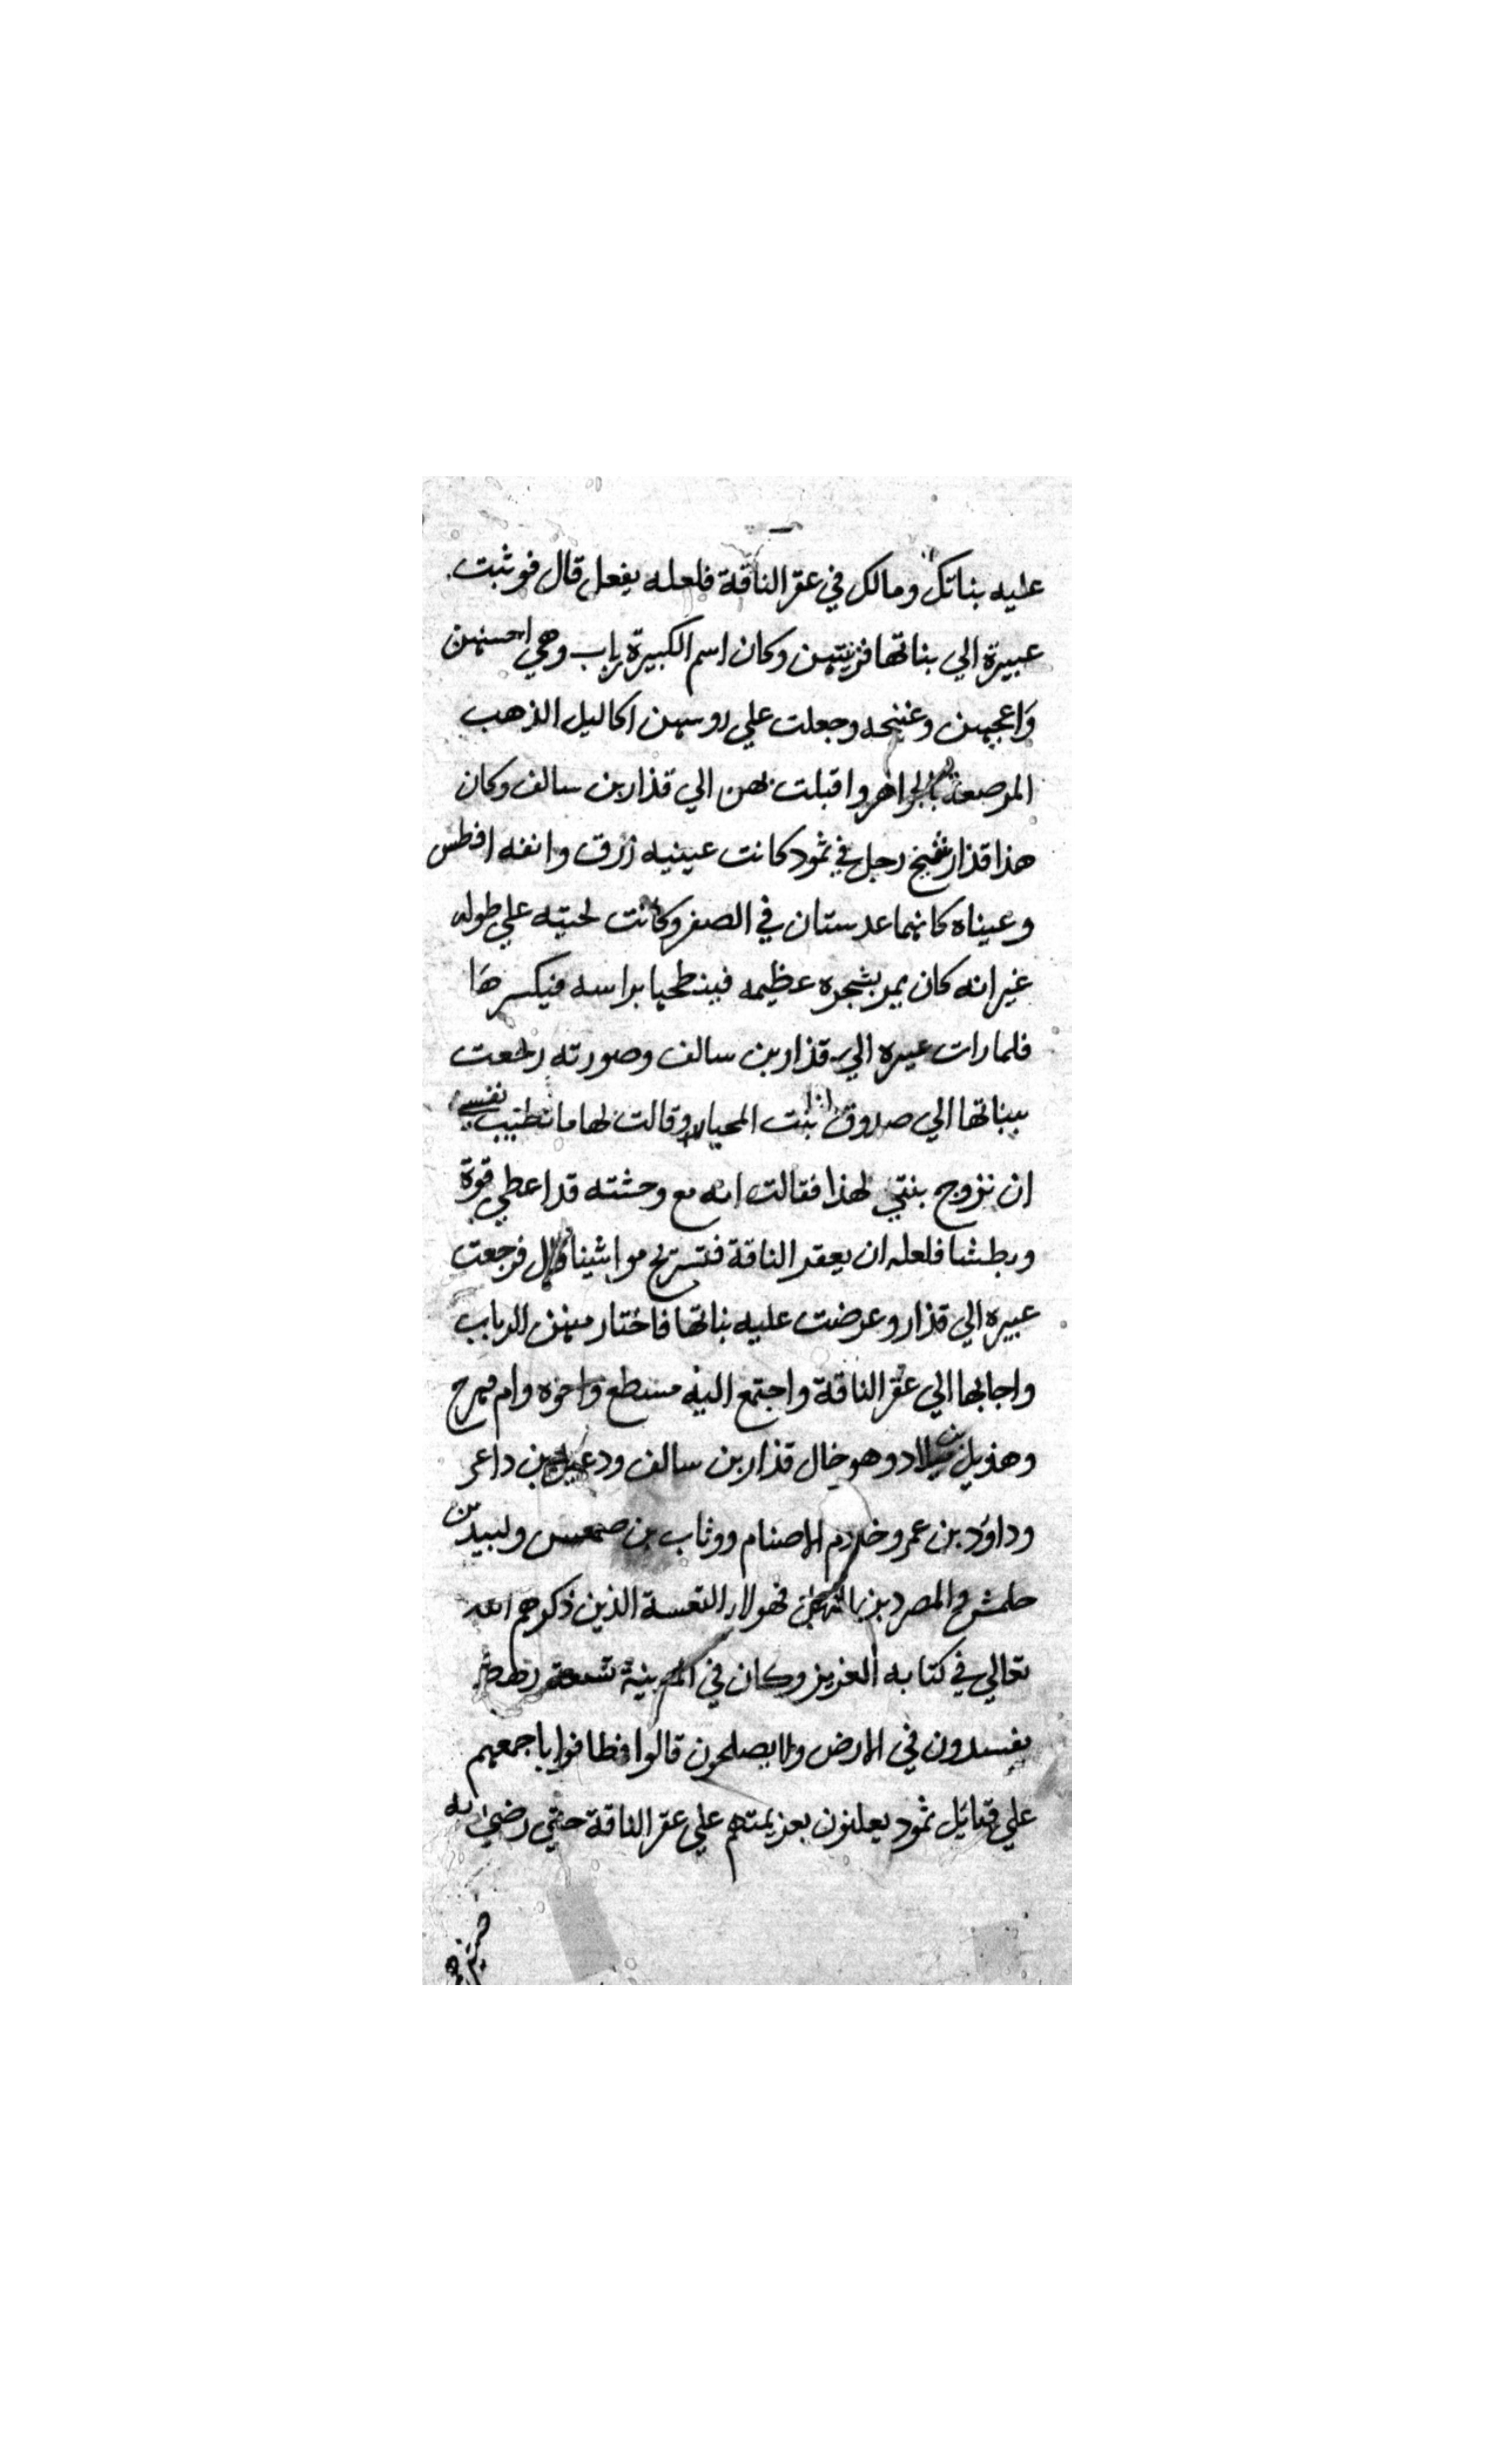 عليه بناتك ومالك في عقر الناقة فلعله يفعل قال فوثبت
عبيرة الي بناتها فزينتهن وكان اسم الكبيرة رباب وهي احسنهن
واعجبهن وجعلت علي روسهن اكاليل الذهب
المرصعة بالجواهر واقبلت بهن الي قذار بن سالف وكان
هذا قذار رجل في ثمود كانت عينيه زرق وانفه افطس
وعيناه كانهما عدستان في الصغر وكانت لحيته علي طوله
غير انه كان يمر بشجره عظيمه فينطحها براسه فيكسرها
فلما رات عبيره الي قذار بن سالف وصورته رجعت
ببناتها الي صدوق بنت المحيا وقالت لها ما تطيب نفسي
ان نزوج بنتي لهذا فقالت انه مع وحشته قد اعطي قوة
وبطشا فلعله ان يعقر الناقة فتسرح مواشينا قال فرجعت
عبيره الي قذار وعرضت عليه بناتها فاختار منهن الرباب
واجابها الي عقر الناقة واجتمع اليه مسطع واخوه وام مهرج
وهذيل بن ميلاد وهو خال قذار بن سالف بن داعر
وداود بن عمرو خادم الاصنام ووثاب بن ولبيد بن
والمصرد بن فهولاء التسعة الذين ذكرهم الله
تعالي في كتابه العزيز وكان في المدينة تسعة رهط
يفسدون في الارض ولا يصلحون قالوا فطافوا باجمعهم
علي قبائل ثمود يعلنون بعزيمتهم علي عقر الناقة حتي رضي به